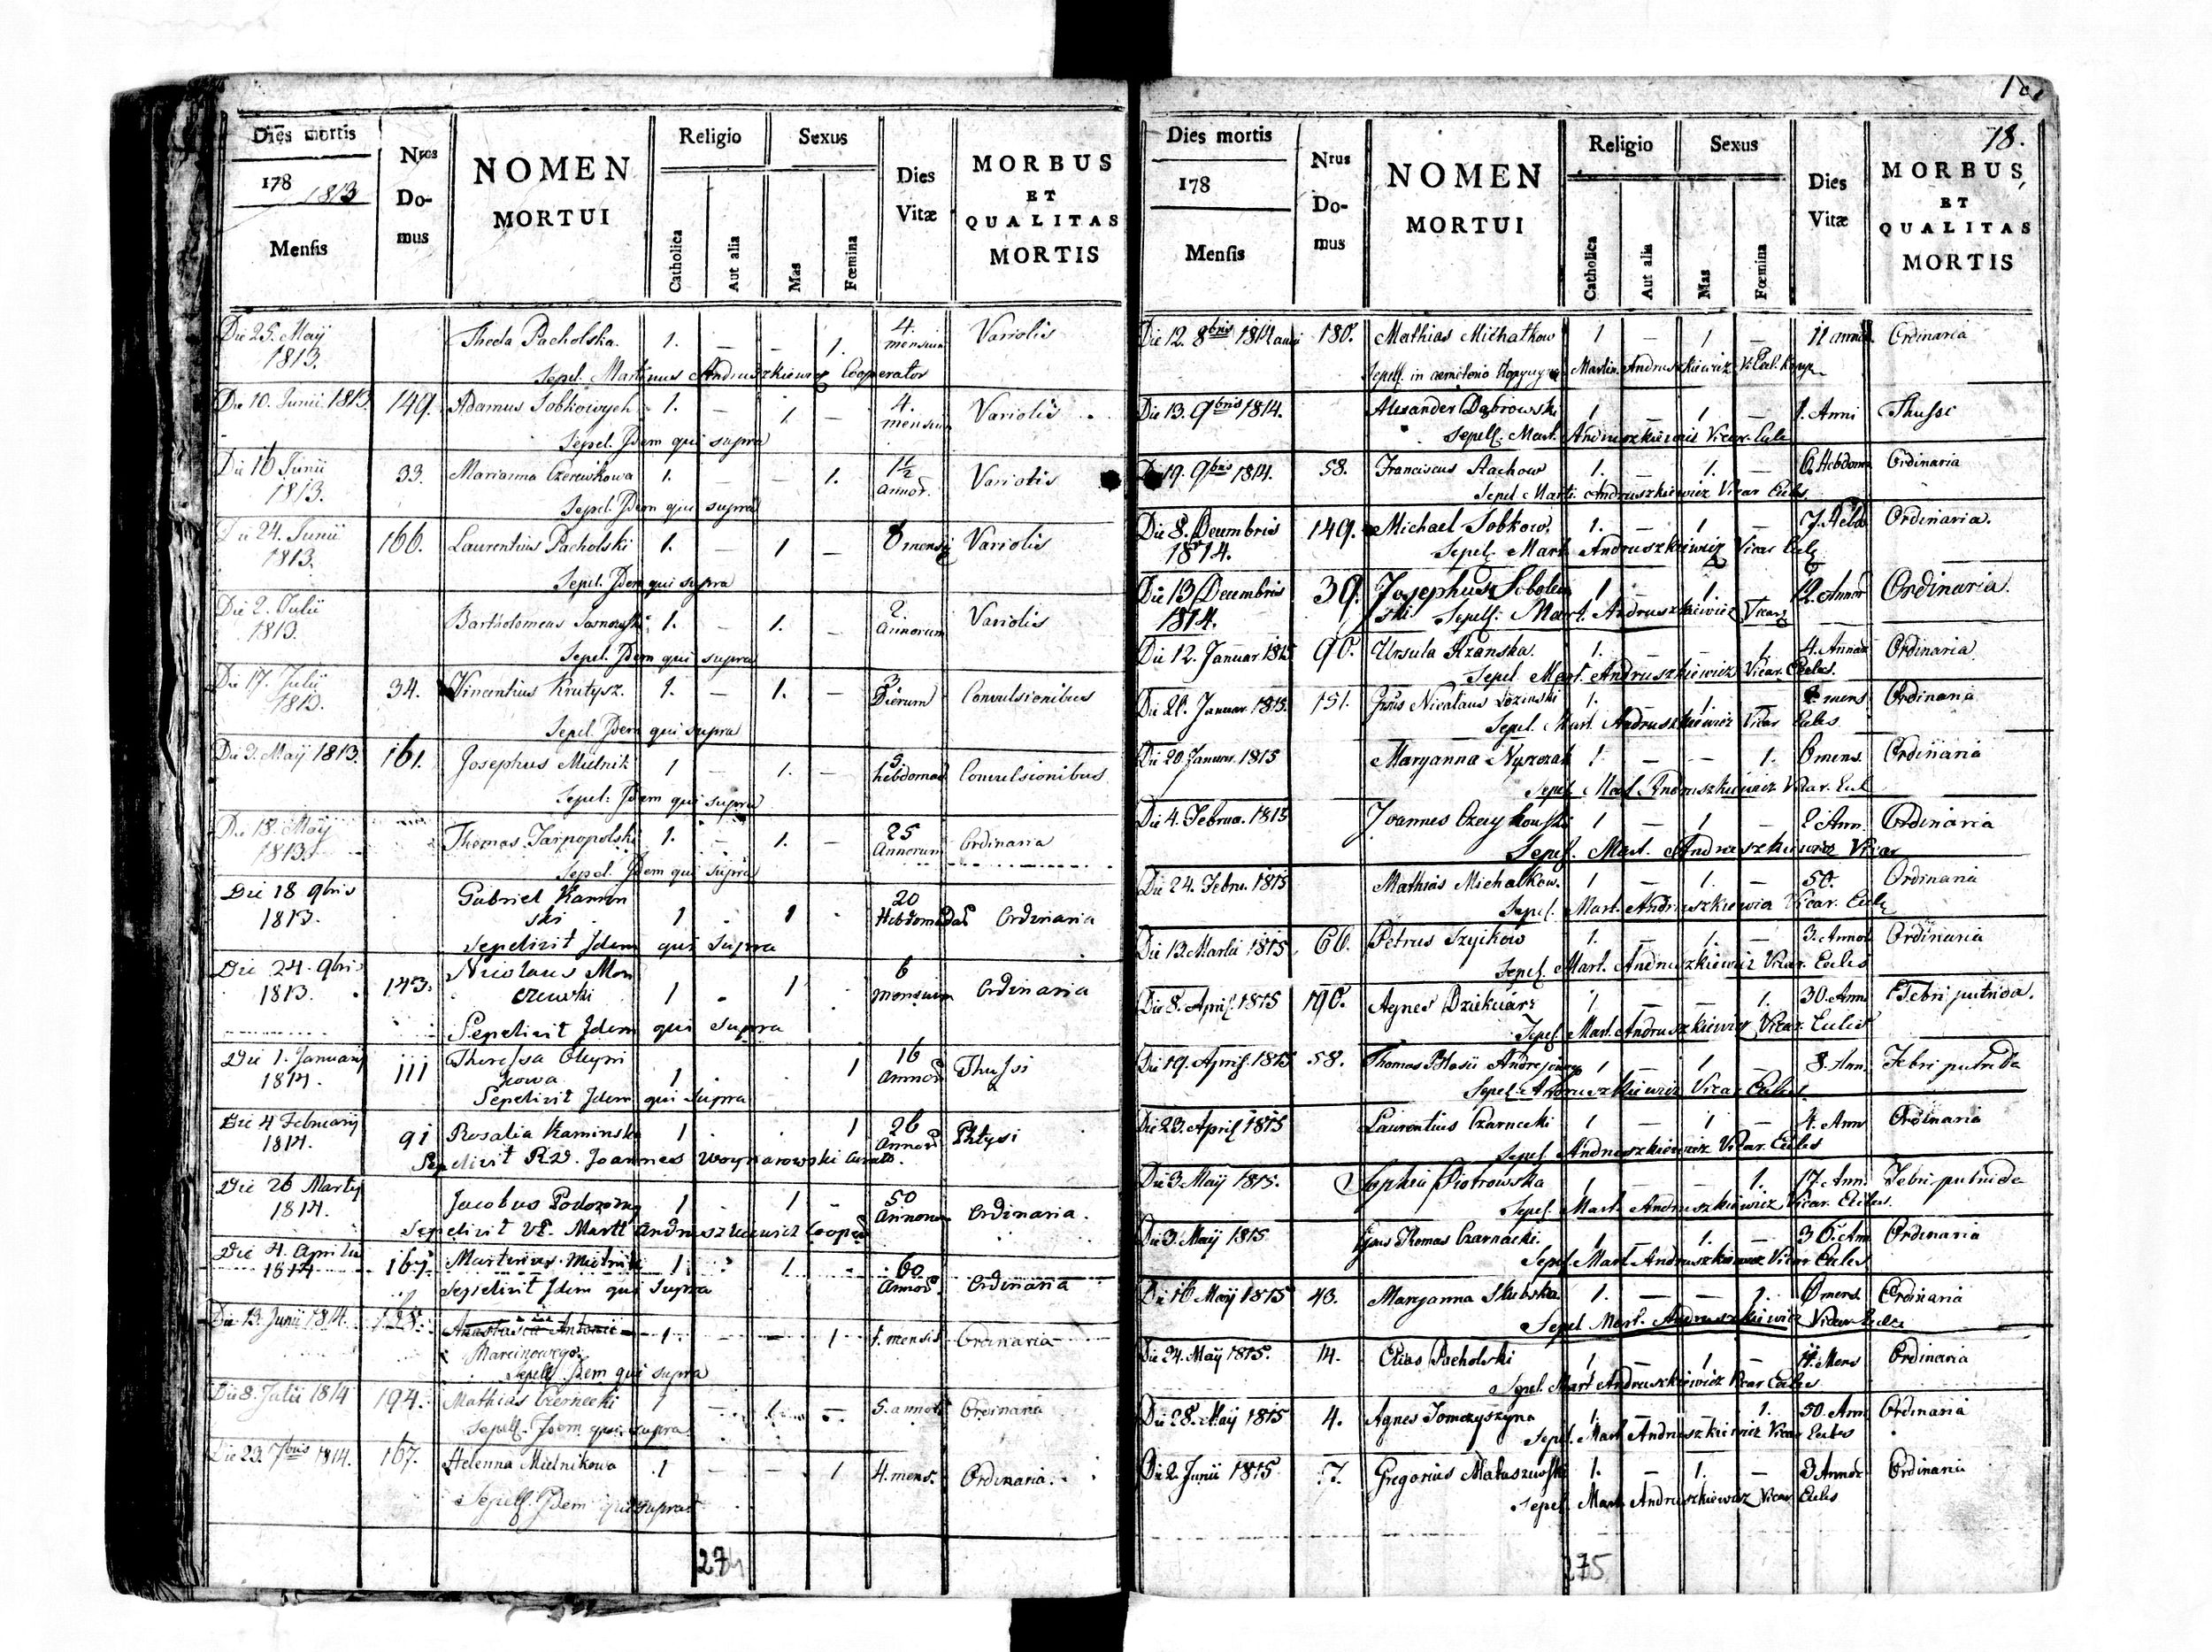 Dies mortis
178 1813
Mensis
Nros
Do-
mus
NOMEN
MORTUI
Religio
Catholica
Aut alia
Sexus
Mas
Fœmina
Dies
Vitæ
MORBUS
ET
QUALITAS
MORTIS
Die 25. Maÿ Thecla Pacholska. 1. — — 1. 4. Variolis
1813. mensium
Sepel. Martinus Andruszkiewicz Cooperator
Die 10. Junii 1813. 149. Adamus Sobkowych 1. — 1. — 4. Variolis
mensium
Sepel. Jdem qui supra
Die 16 Junii 33. Marianna Czerewkowa 1. — — 1. 1½ Variolis
1813. annor.
Sepel. Jdem qui supra
Die 24. Junii 166. Laurentius Pacholski 1. — 1 — 8 mensij Variolis
1813.
Sepel. Jdem qui supra
Die 2. Julii Bartholomeus 1. — 1. — 2. Variolis
1813. Annorum
Sepel. Jdem qui supra
Die 17. Julii 34. Vincentius Krutysz. 1. — 1. — 3 Convulsionibus
1813. Dierum
Sepel. Jdem qui supra
Die 3. Maÿ 1813. 161. Josephus Mielnik 1 — 1. — 5. Convulsionibus
hebdomad
Sepel: Jdem qui supra
Die 18. Maÿ Thomas Tarnopolski 1. — 1. — 25 Ordinaria
1813. Annorum
Sepel. Jdem qui supra
Die 18 9bris Gabriel Kamin 20
1813. ski 1 . 1 . Hebdomadae Ordinaria
Sepelivit Jdem qui supra
Die 24. 9bris Nicolaus Mon 6
1813. 143. czewski 1 . 1 . mensium Ordinaria
Sepelivit Jdem qui supra
Die 1. January Theressa Oleyni 1 16 Thussi
1814. 111 kowa 1 . annor
Sepelivit Jdem qui supra
Die 4 February 91 Rosalia Kaminska 1 . . 1 26 Phtysi
1814. annor
Sepelivit R.D. Joannes Woynarowski
Die 26 Marty Jacobus 1 . 1 — 50 Ordinaria.
1814. Annorum
Sepelivit Martt Andruszkiewicz Cooper
Die 4. Aprilis 167. Martinus Mielnik 1. . 1 . 60 Ordinaria
1814 Annor.
Sepelivit Jdem qui supra
Die 13. Junii 1814. 128. Anastasia Antonii 1. — — 1 1. mensis Ordinaria
Marcinowego.
Sepell Jdem qui supra
Die 8. Julii 1814 194. Mathias Czernecki 1 — 1. — 5. annor Ordinaria
Sepell. Jdem qui supra
Die 23. 7bris 1814. 167. Helenna Mielnikowa 1 — — 1 4. mens. Ordinaria.
Sepell. Jdem qui supra
274
18.
Dies mortis
178
Mensis
Nrus
Do-
mus
NOMEN
MORTUI
Religio
Catholica
Aut alia
Sexus
Mas
Fœmina
Dies
Vitæ
MORBUS,
ET
QUALITAS
MORTIS
Die 12. 8bris 1814 180. Mathias Michalkow 1 — 1 — 11 annor. Ordinaria
Sepell. in Martin. Andruszkiewicz
Die 13. 9bris 1814. Alexander Dąbrowski 1 — 1 — 1. Anni Thussi
Sepell. Mart. Andruszkiewicz Vicar. Eccle
Die 19. 9bris 1814. 58. Franciscus Stachow 1. — 1. — 6. Hebdom Ordinaria
Sepel Marti. Andruszkiewicz Vicar Eccles
Die 8. Decembris 149. Michael Sobkow. 1. — 1 — 7. Hebd Ordinaria.
1814. Sepel. Mart Andruszkiewicz Vicar Eccle
Die 13 Decembris 39. Josephus Sobolew 1 — 1. 12. Annor Ordinaria.
1814. ski Sepell. Mart. Andruszkiewicz Vicar
Die 12. Januar 1815 90. Ursula 1. — — 1. 4. Annor Ordinaria.
Sepel Mart. Andruszkiewicz Vicar. Eccles.
Die 21. Januar 1815. 151. Nicolaus Lozinski 1. — 1. — mens Ordinaria
Sepel. Mart. Andruszkiewicz Vicar Eccles
Die 20 Januar. 1815 Maryanna 1. — — 1. 6 mens. Ordinaria
Sepel Mart Andruszkiewicz Vicar. Eccl
Die 4. Februa. 1815 Joannes 1 — 1 — 2 Ann. Ordinaria
Sepel. Mart. Andruszkiewicz Vicar
Die 24. Febru. 1815 Mathias Michalkow. 1 — 1. — 50. Ordinaria
Sepel. Mart. Andruszkiewicz Vicar. Eccle
Die 13. Martii 1815 66. Petrus Szyikow 1. — 1. — 3. Annor Ordinaria
Sepel. Mart. Andruszkiewicz Vicar. Eccles
Die 8. April. 1815 190. Agnes 1 — — 1. 30. Ann Febri putrida.
Sepel. Mart. Andruszkiewicz Vicar. Eccles
Die 19. April. 1815 58. Thomas Blasii 1 — 1 — 8. Ann. Febri putrida
Sepel. Andruszkiewicz Vicar Eccles.
Die 23. April 1815 Laurentius Czarnecki 1 — 1 — 4. Ann Ordinaria
Sepel. Andruszkiewicz Vicar. Eccles
Die 3 Maÿ 1815. Sophia Piotrowska 1 — — 1. 17. Ann. Febri putrida
Sepel. Mart. Andruszkiewicz Vicar. Eccles.
Die 3. Maÿ 1815 Thomas Czarnacki. 1 — 1. — 36. Ann Ordinaria
Sepel. Mart Andruszkiewicz Vicar Eccles
Die 16 Maÿ 1815 43. Maryanna Skubska 1. — — 1. 6 mens. Ordinaria
Sepel Mart. Andruszkiewicz Vicar Eccle
Die 24. Maÿ 1815. 14. Elias Pacholski 1 — 1 — Mens Ordinaria
Sepel. Mart Andruszkiewicz Vicar Eccles
Die 28. Maÿ 1815 4. Agnes Tomczyszyna 1. — 1. 50. Ann Ordinaria
Sepel. Mart Andruszkiewicz Vicar Eccles
Die 2. Junii 1815 7. Gregorius Matuszewski 1. — 1. — 3 Annor Ordinaria
Sepel. Mart. Andruszkiewicz Vicar Eccles
275